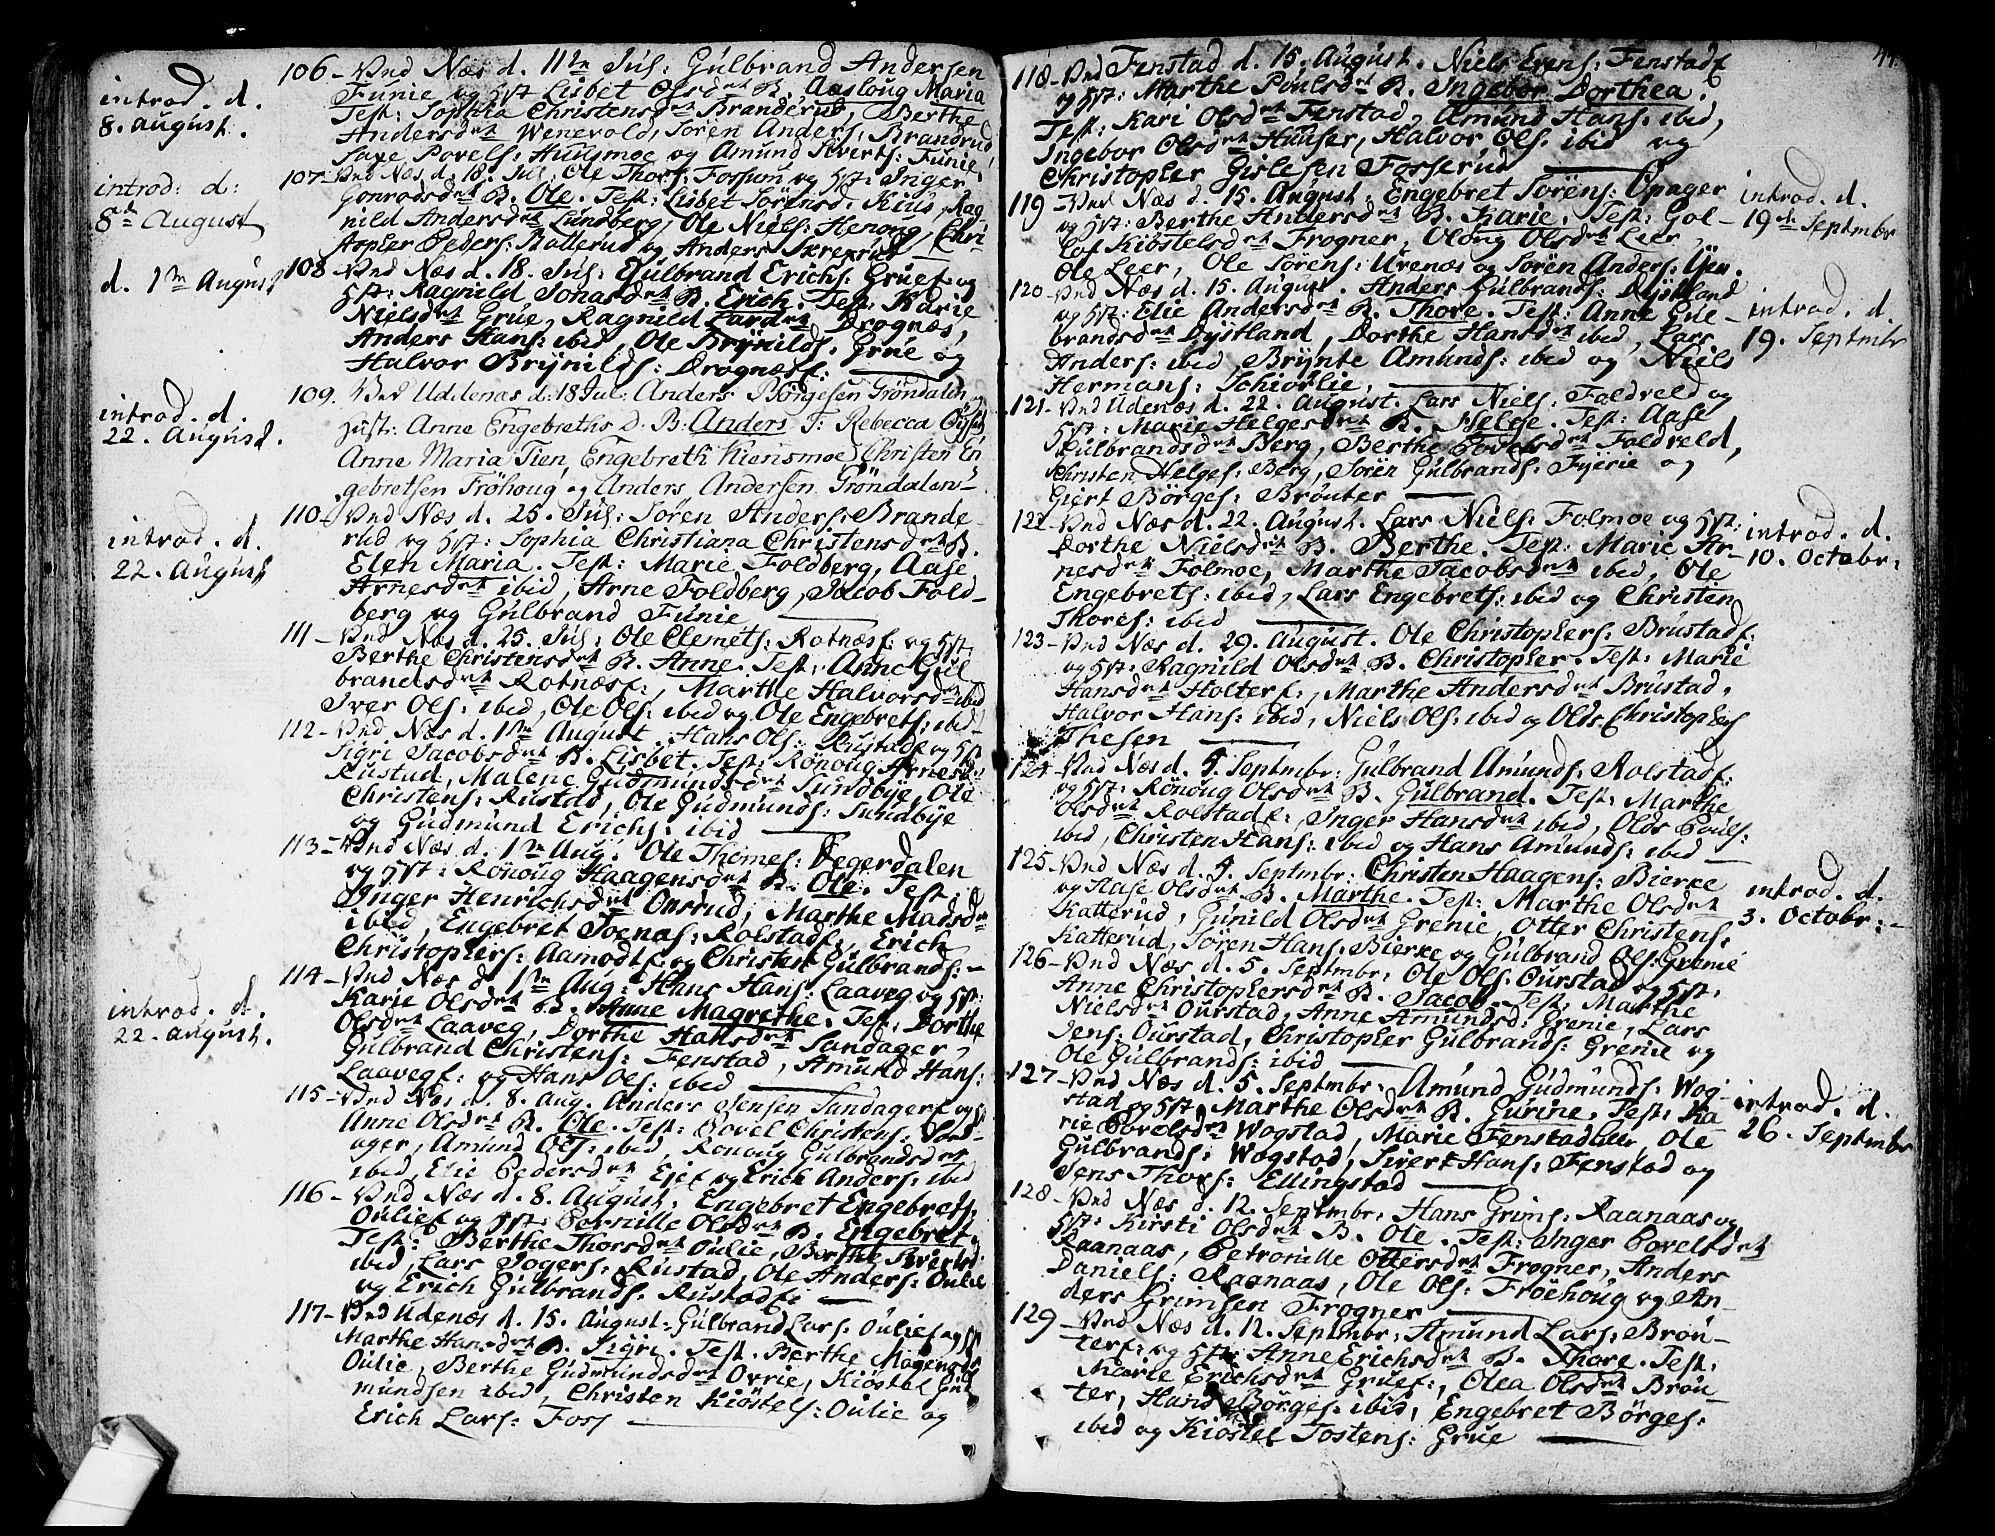 introd. d.
8. August.
106 – Und Næs d. 11te Jul: Gulbrand Andersen
Funie og Hst Lisbet Olsdtr B. Aasloug Maria
Test: Sophia Christensdtr Branderud, Berthe
Andersdtr Wenevold, Søren Anders: Brandrud
Povels: Huusmoe og Amund Sverts: Funie
introd: d:
8de August
107 – Und Næs d. 18. Jul: Ole Thors: Fossum og Hst: Inger
Gonrodsdtr B. Ole. Test: Lisbet Sørensd. Kius, Rag-
nild Andersdtr Lundberg, Ole Niels: Henong, Chri-
stopher Peders: Kallerud og Anders Skrepsrud
d. 1ste August
108 Und Næs d. 18. Jul: Gulbrand Erichs: Gruef og
Hst: Ragnild Jonasdtr B. Erich. Test: Karie
Nielsdtr Grue, Ragnild Lardtr Drognæs,
Anders Hans: ibid, Ole Brynilds: Grue og
Halvor Brynilds: Drognæsf:
introd. d.
22. August.
109. Und Uddenæs d: 18 Jul: Anders Börgesen Gröndalen og
Hust: Anne Engebreths D: B: Anders T: Rebecca
Anne Maria Tien, Engebreth Kiensmoe, Christen En
gebretsen Fröhoug og Anders Andersen Gröndalen
introd. d.
22. August
110 – Und Næs d. 25. Jul: Søren Anders: Brande-
rud og Hst: Sophia Christiana Christensdtr B.
Elen Maria. Test: Marie Foldberg, Aase
Arnesdtr ibid, Arne Foldberg, Jacob Fold-
berg og Gulbrand Funie
111 – Und Næs d. 25. Jul: Ole Clemets: Rotnæsf: og Hst:
Berthe Christensdtr B. Anne. Test: Anne Gul
brandsdtr Rotnæsf:, Marthe Halvorsdtr ibid
Iver Ols: ibid, Ole Ols: ibid og Ole Engebrets: ibid
112 – Und Næs d. 1ste August. Hans Ols: Rustadf og Hst
Sigri Jacobsdtr B. Lisbet. Test: Rönoug Arnesd:
Rustad, Malene Gudmundsdtr Sundbye, Ole
Christens: Rustad, Ole Gudmunds: Sundbye
og Gudmund Erichs: ibid
113 – Und Næs d. 1ste Aug: Ole Thomes: Degerdalen
og Hst: Rönoug Haagensdtr B. Ole. Test:
Inger Henrichsdtr Onsrud, Marthe Madsdtr
ibid, Engebret Joenas: Rolstadf:, Erich
Christophers: Aamodtf: og Christen Gulbrands: –
introd. d.
22. August.
114 – Und Næs d. 1ste Aug: Hans Hans: Laaveg og Hst:
Karie Olsdtr B. Anne Magrethe. Test: Dorthe
Olsdtr Laaveg, Dorthe Hansdtr Sandager,
Gulbrand Christens: Fenstad, Amund Hans:
Laavegf: og Hans Ols: ibid
115 – Und Næs d. 8. Aug. Anders Jensen Sandagerf og Hst
Anne Olsdtr B. Ole. Test: Povel Christens: Sand-
ager, Amund Ols: ibid, Rönoug Gulbrandsdtr
ibid, Elie Pedersdtr Ejef og Erich Anders: ibid
116 – Und Næs d. 8. August: Engebret Engebrets:
Oulief og Hst: Pernille Olsdtr B. Engebret.
Test: Berthe Thorsdtr Oulie, Berthe Svertsd:
ibid, Lars Jogers: Rustad, Ole Anders: Oulie
og Erich Gulbrands: Rustadf:
117 – Und Udenæs d. 15. August: Gulbrand Lars: Oulief og Hst
Marthe Hansdtr B. Sigri. Test. Berthe Mogensdtr
Oulie, Berthe Gudmundsdtr Ovrie, Kiöstel Gud
mundsen ibid, Christen Kiöstels: Oulie og
Erich Lars: Foss
118 – Und Fenstad d. 15. August. Niels Evens: Fenstadf
og Hst: Marthe Poulsdtr B. Ingebor Dorthea.
Test: Kari Olsdtr Fenstad, Amund Hans: ibid,
Ingebor Olsdtr Huuser, Halvor Ols: ibid og
Christopher Gislesen Fosserud
introd. d.
19de Septembr
119 Und Næs d. 15. August, Engebret Sörens: Opager
og Hst: Berthe Andersdtr B. Karie. Test: Gol-
lof Kiöstelsdtr Frogner, Oloug Olsdtr Leer,
Ole Leer, Ole Sörens: Urenæs og Sören Anders: Uren.
introd. d.
19. Septembr
120 – Und Næs d. 15. August. Anders Gulbrands: Dystland
og Hst: Elie Andersdtr B. Thore. Test: Anne Gul-
brandsdtr Dystland, Dorthe Hansdtr ibid, Lars
Anders: ibid Brynte Amunds: ibid og Niels
Hermans: Schiørlie,
121 – Und Udenæs d. 22. August. Lars Niels: Foldveld og
Hst: Marie Helgesdtr B. Helge. Test: Aase
Gulbrandsdtr Berg, Berthe Povelsdtr Foldveld,
Christen Helges: Berg, Sören Gulbrands: Fyerie og
Giert Börges: Brönter
introd. d.
10. Octobr:
122 – Und Næs d. 22. August. Lars Niels: Folmoe og Hst:
Dorthe Nielsdtr B. Berthe. Test: Marie Ar-
nesdtr Folmoe, Marthe Jacobsdtr ibid, Ole
Engebrets: ibid, Lars Engebrets: ibid og Christen
Thores: ibid
123 – Und Næs d. 29. August. Ole Christophers: Brustadf:
og Hst: Ragnild Olsdtr B. Christopher. Test: Marie
Hansdtr Holterf:, Marthe Andersdtr Brustad,
Halvor Hans: ibid, Niels Ols: ibid og Olds Christophs
Thesen
124 – Und Næs d. 5. Septembr: Gulbrand Amunds: Rolstadf:
og Hst: Rönoug Olsdtr B. Gulbrand. Test: Marthe
Olsdtr Rolstadf:, Inger Hansdtr ibid, Olds Pouls:
ibid, Christen Hans: ibid og Hans Amunds: ibid
introd. d.
3. Octobr: –
125 – Und Næs d. 5. Septembr: Christen Haagens: Bierke
og Aase Olsdtr B. Marthe. Test: Marthe Olsdtr
Katterud, Gunild Olsdtr Grenie, Otter Christens:
Katterud, Sören Hans: Bierke og Gulbrand Ols: Grenie
126 – Und Næs d. 5. Septembr: Ole Ols: Ourstad og Hst:
Anne Christophersdtr B. Jacob. Test: Marthe
Nielsdtr Ourstad, Anne Amundsd: Grenie, Lars
Jens: Ourstad, Christopher Gulbrands: Grenie og
Ole Gulbrands: ibid
introd. d.
26. Septembr
127 – Und Næs d. 5. Septembr: Amund Gudmunds: Wog-
stad og Hst Marthe Olsdtr B. Gurine. Test: Ka-
rie Povelsdtr Wogstad, Marie Fenstad, Ole
Gulbrands: Wogstad, Sivert Hans: Fenstad og
Jens Thors: Ellingstad
128 – Und Næs d. 12. Septembr: Hans Grims: Raanaas og
Hst: Kirsti Olsdtr B. Ole. Test: Inger Povelsdtr
Raanaas, Petronille Ottersdtr Frogner, Anders
Daniels: Raanaas, Ole Ols: Fröehoug og An-
ders Grimsen Frogner
129 – Und Næs d. 12. Septembr: Amund Lars: Brön-
terf: og Hst: Anne Erichsdtr B. Thore. Test:
Marie Erichsdtr Gruef:, Olea Olsdtr Brön-
ter, Hans Börges: ibid, Engebret Börges:
ibid og Kiöstel Tostens: Grue